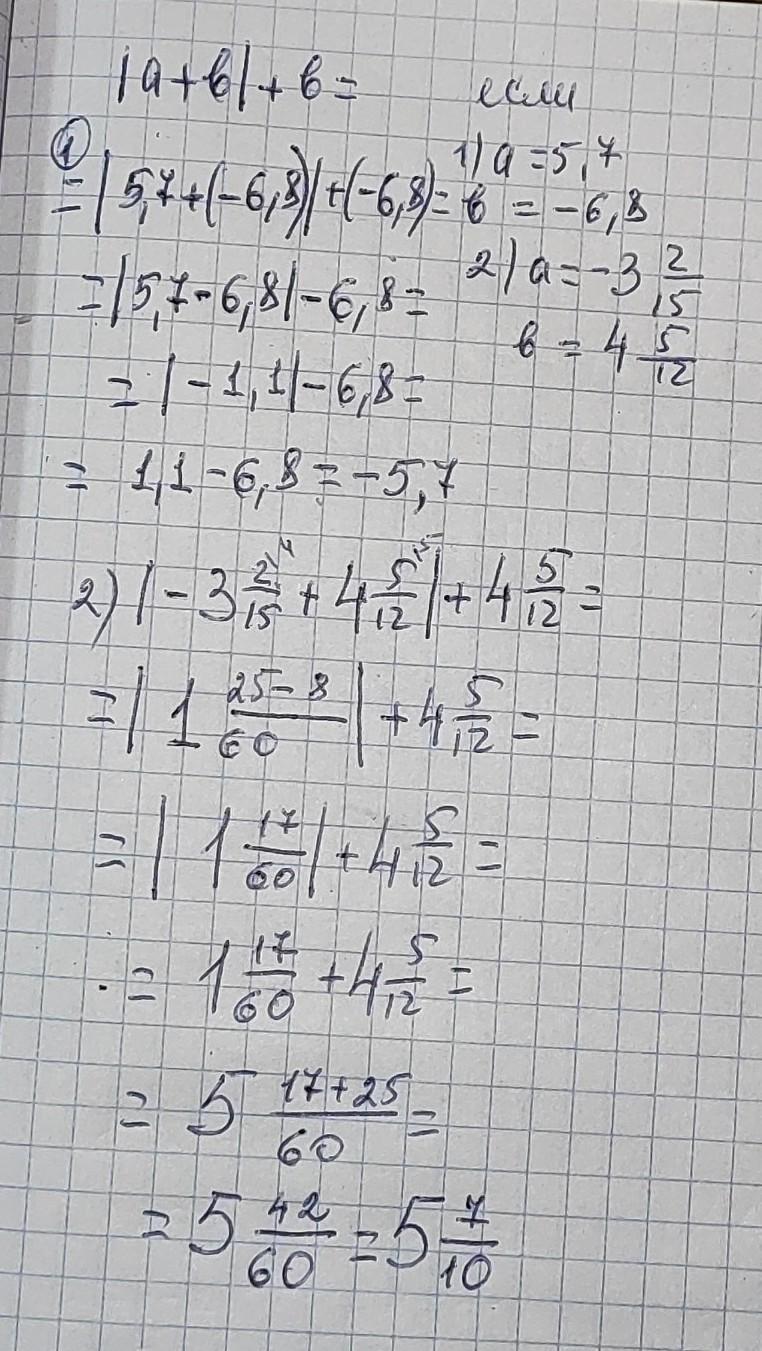 |a+b|+b= если
① 1) a=5,7
=|5,7+(-6,8)|+(-6,8)= b = -6,8
2) a=-3 2/15
=|5,7-6,8|-6,8=
b = 4 5/12
= |-1,1|-6,8=
= 1,1-6,8=-5,7
2) |-3 2/15 ⁴ + 4 5/12 ⁵|+4 5/12 =
=|1 25-8/60|+4 5/12 =
=|1 17/60|+4 5/12 =
= 1 17/60 +4 5/12 =
= 5 17+25/60 =
= 5 42/60 = 5 7/10